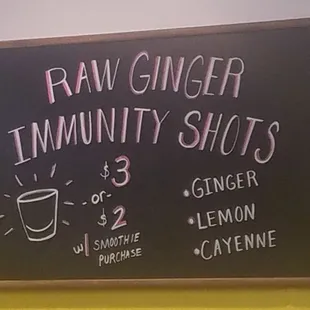 RAW GINGER
IMMUNITY SHOTS
$3
-or-
$2
w/ SMOOTHIE
PURCHASE
•GINGER
•LEMON
•CAYENNE